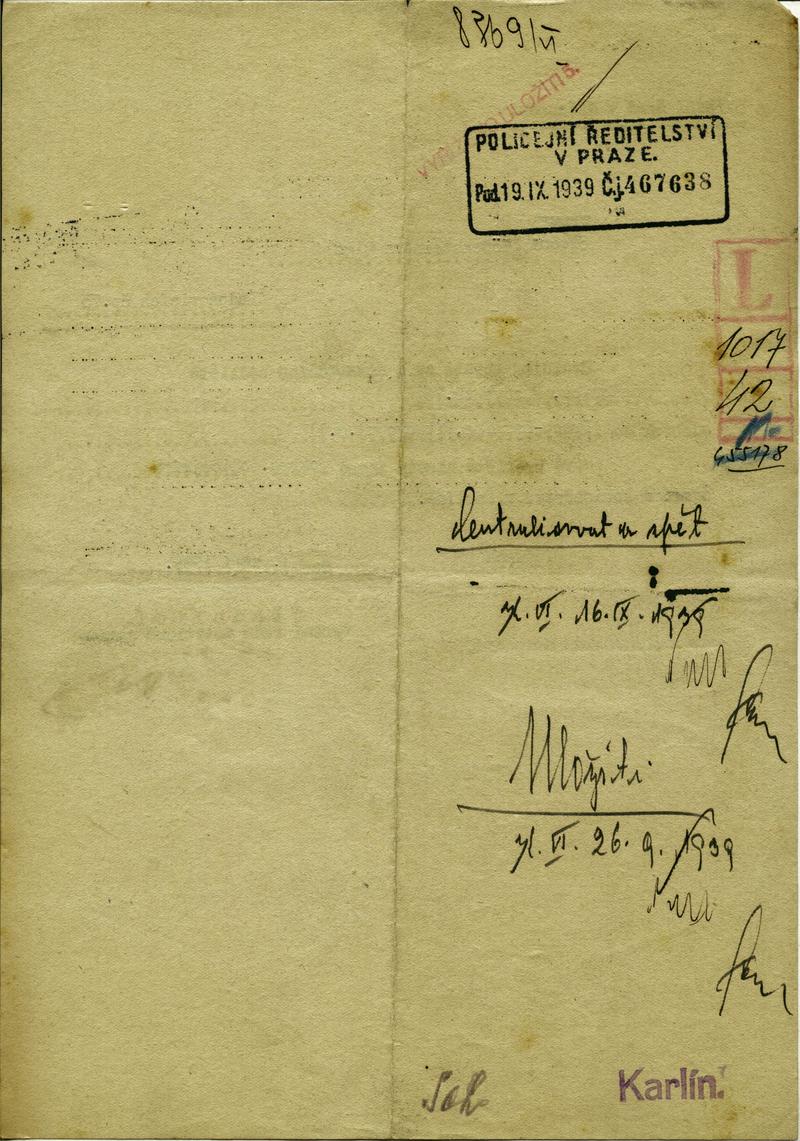 8369/VI
POLICEJNÍ ŘEDITELSTVÍ
V PRAZE.
Pod. 19. IX. 1939 Č.j. 467638
L
1017
42
455178
Centralisovat a zpět
VI. 16. IX. 1939
Uložiti
VI. 26. 9. 1939
Karlín.